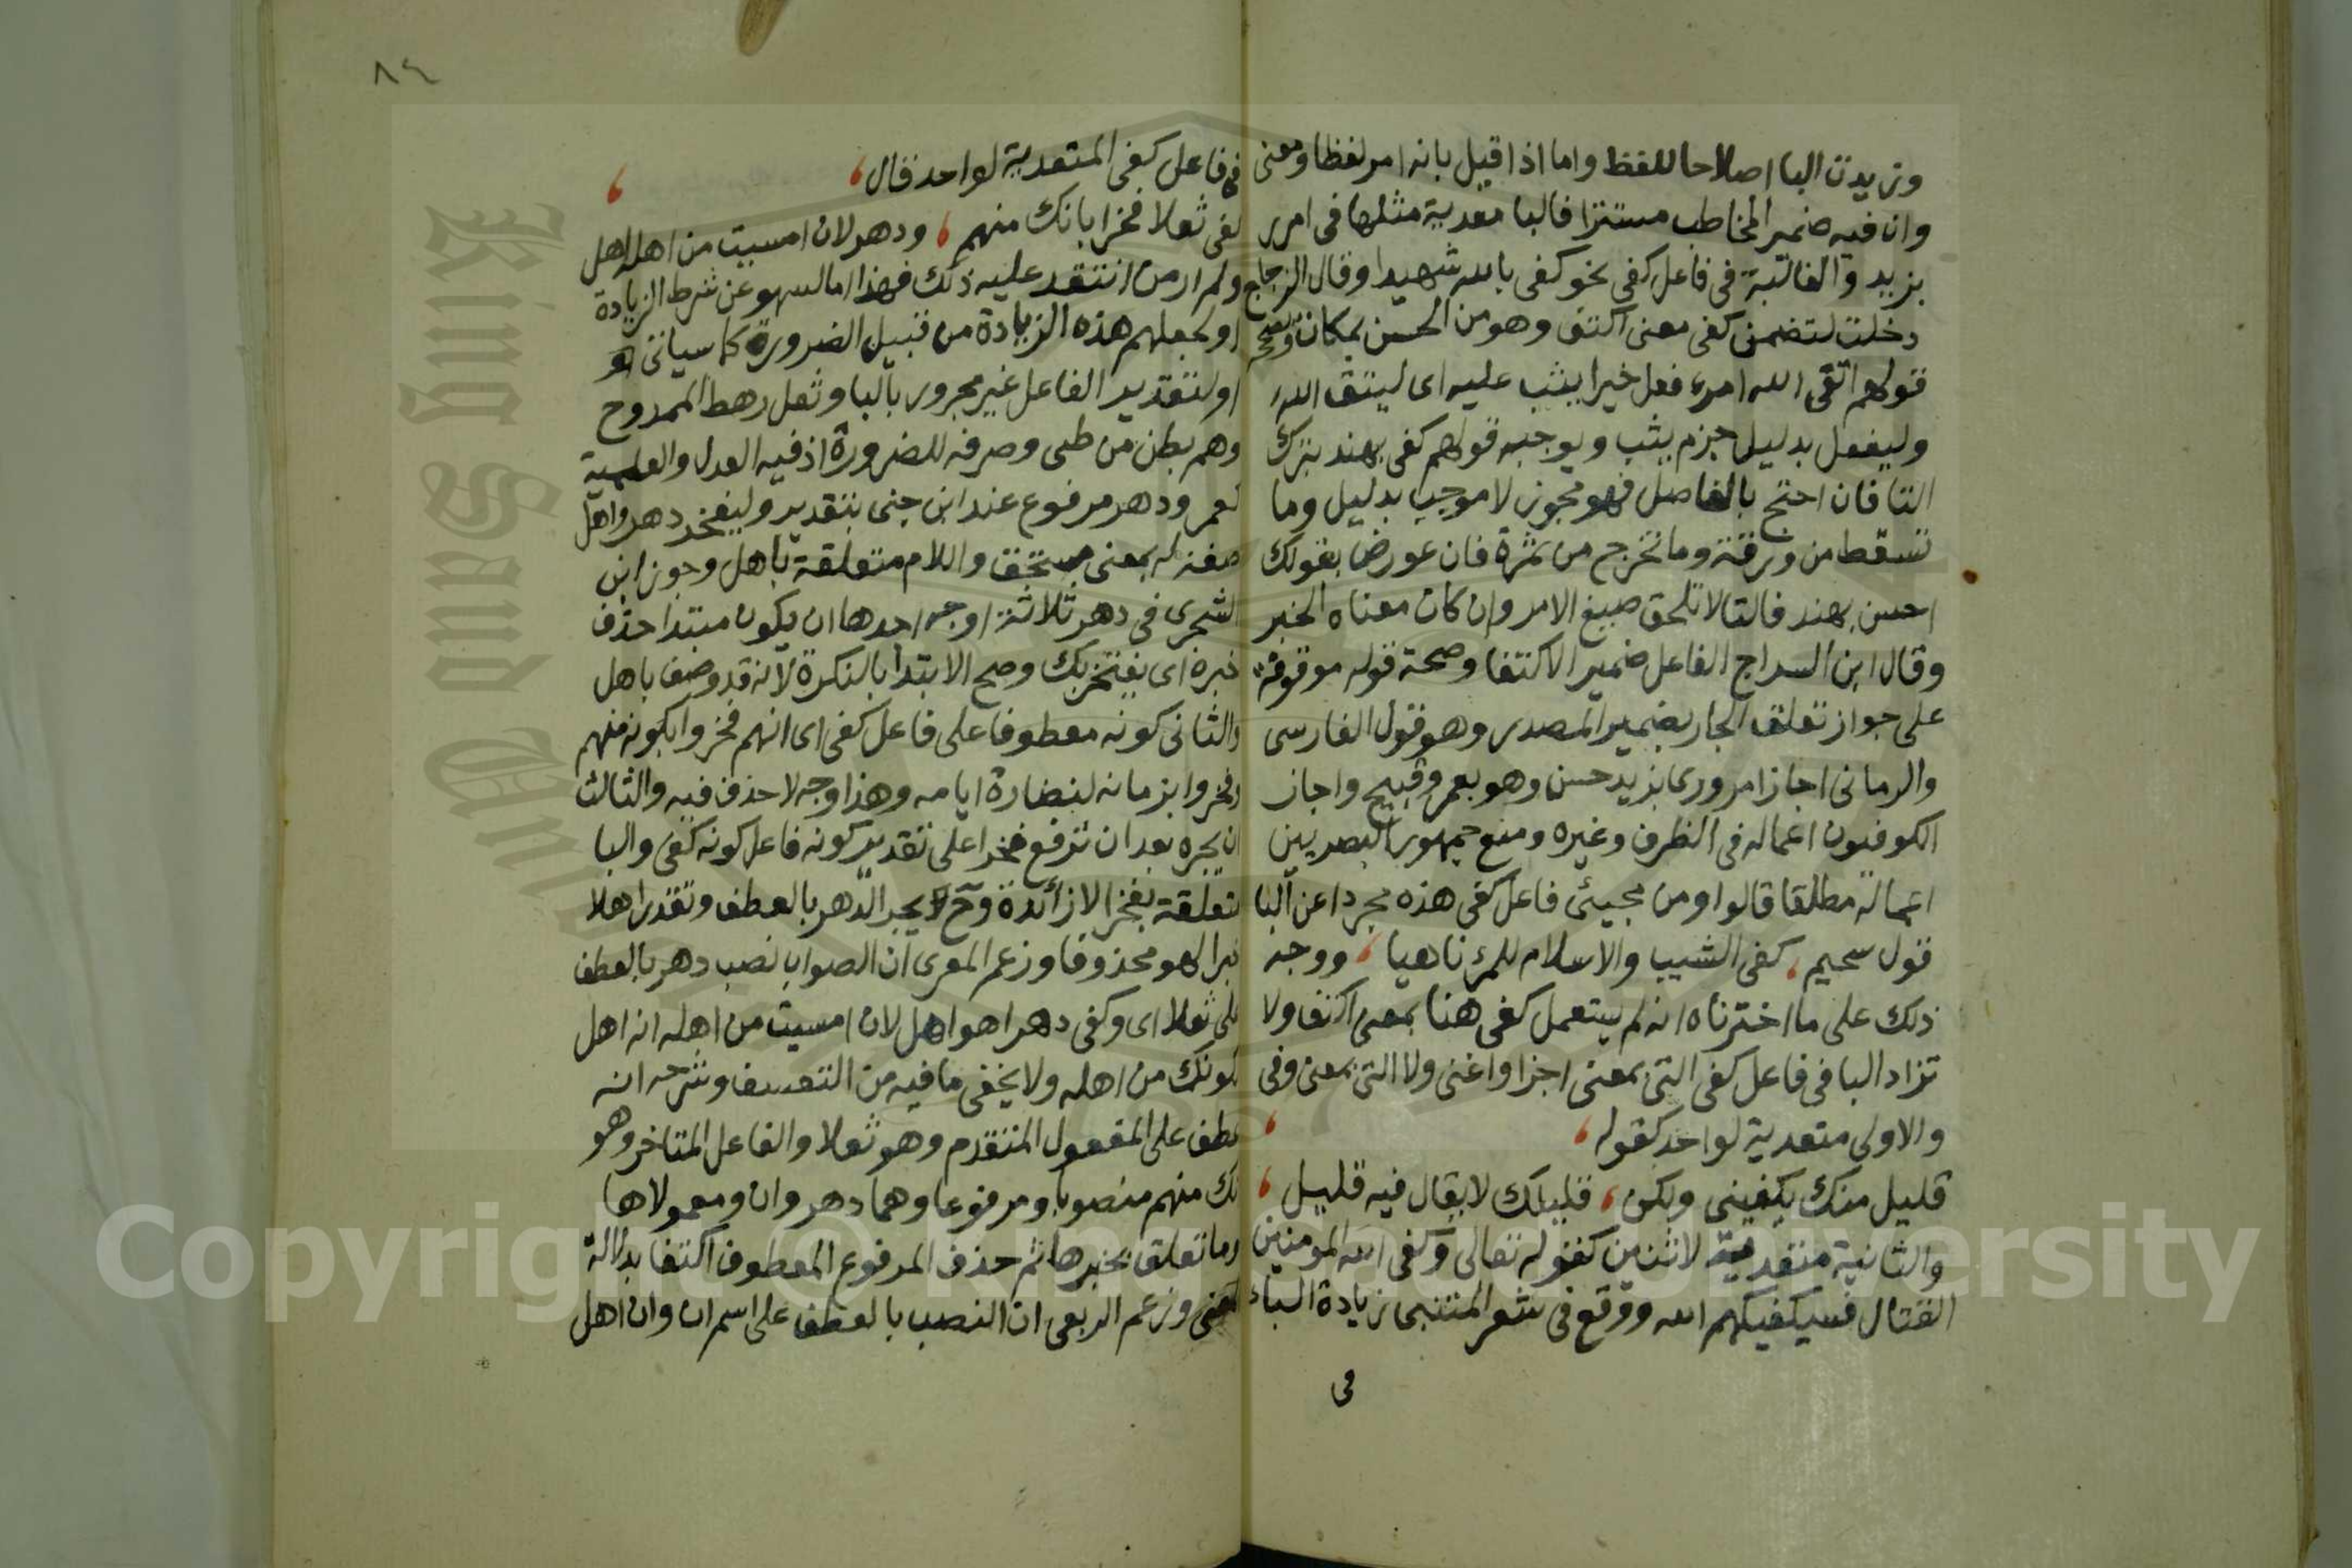 وزيدت البا اصلاحا للفظ واما اذا قيل بانه امر لفظا ومعنى
وان فيه ضمير المخاطب مستترا فالبا معدية مثلها في امرر
بزيد والغالبة في فاعل كفى نحو كفى بالله شهيدا وقال الزجاج
دخلت لتضمن كفى معنى اكتف وهو من الحسن بمكان ويصحح
قولهم اتقى الله امرء فعل خيرا يثب عليه اى ليتق الله
وليفعل بدليل جزم يثب ويوجبه قولهم كفى بهند بترك
التا فان احتج بالفاصل فهو مجوز لا موجب بدليل وما
تسقط من ورقة وما تخرج من ثمرة فان عورض بقولك
احسن بهند فالتا لا تلحق صيغ الامر وان كان معناه الخبر
وقال ابن السراج الفاعل ضمير الاكتفا وصحة قوله موقوفة
على جواز تعلق الجار بضمير المصدر وهو قول الفارسى
والرمانى اجازا مرورى بزيد حسن وهو بعمرو قبيح واجاز
الكوفيون اعماله في الظرف وغيره ومنع جمهور البصريين
اعماله مطلقا قالوا ومن مجيئ فاعل كفى هذه مجردا عن البا
قول سحيم، كفى الشيب والاسلام للمرء ناهيا، ووجه
ذلك على ما اخترناه انه لم يستعمل كفى هنا بمعنى اكتف ولا
تزاد البا في فاعل كفى التى بمعنى اجزا واغنى ولا التى بمعنى وفى
والاولى متعدية لواحد كقوله،
قليل منك يكفينى ولكن، قليلك لا يقال فيه قليل،
والثانية متعدية لاثنين كقوله تعالى وكفى الله المومنين
القتال فسيكفيكهم الله ووقع في شعر المتنبى زيادة الباء
فى
٨٤
فى فاعل كفى المتعدية لواحد فال،
كفى ثعلا فخرا بانك منهم، ودهر لان امسيت من اهله اهل
ولم ار من انتقد عليه ذلك فهذا اما لسهو عن شرط الزيادة
او لجعلهم هذه الزيادة من قبيل الضرورة كما سياتى
او لتقدير الفاعل غير مجرور بالبا وثعل رهط الممدوح
وهم بطن من طى وصرفه للضرورة اذ فيه العدل والعلمية
كعمر ودهر مرفوع عند ابن جنى بتقدير وليفخر دهر واهل
صفة له بمعنى مستحق واللام متعلقة باهل وجوز ابن
الشجرى في دهر ثلاثة اوجه احدها ان يكون مبتدا حذف
خبره اى يفتخر بك وصح الابتدا بالنكرة لانه قد وصف باهل
والثانى كونه معطوفا على فاعل كفى اى انهم فخروا بكونه منهم
وفخروا بزمانه لنضارة ايامه وهذا وجه لا حذف فيه والثالث
ان يجره بعد ان ترفع فخرا على تقدير كونه فاعل كونه كفى والبا
متعلقة بفخر لا زائدة وح يجر الدهر بالعطف وتقدر اهلا
خبرا لهو محذوفا وزعم المعرى ان الصواب نصب دهر بالعطف
على ثعلا اى وكفى دهرا هو اهل لان امسيت من اهله انه اهل
لكونك من اهله ولا يخفى ما فيه من التعسف وشرحه انه
عطف على المفعول المتقدم وهو ثعلا والفاعل المتاخر وهو
انك منهم منصوبا ومرفوعا وهما دهر وان ومعمولاها
وما تعلق بخبرها ثم حذف المرفوع المعطوف اكتفا بدلالة
المعنى وزعم الربعى ان النصب بالعطف على اسم ان وان اهل
King Saud
Copyright © King Saud University